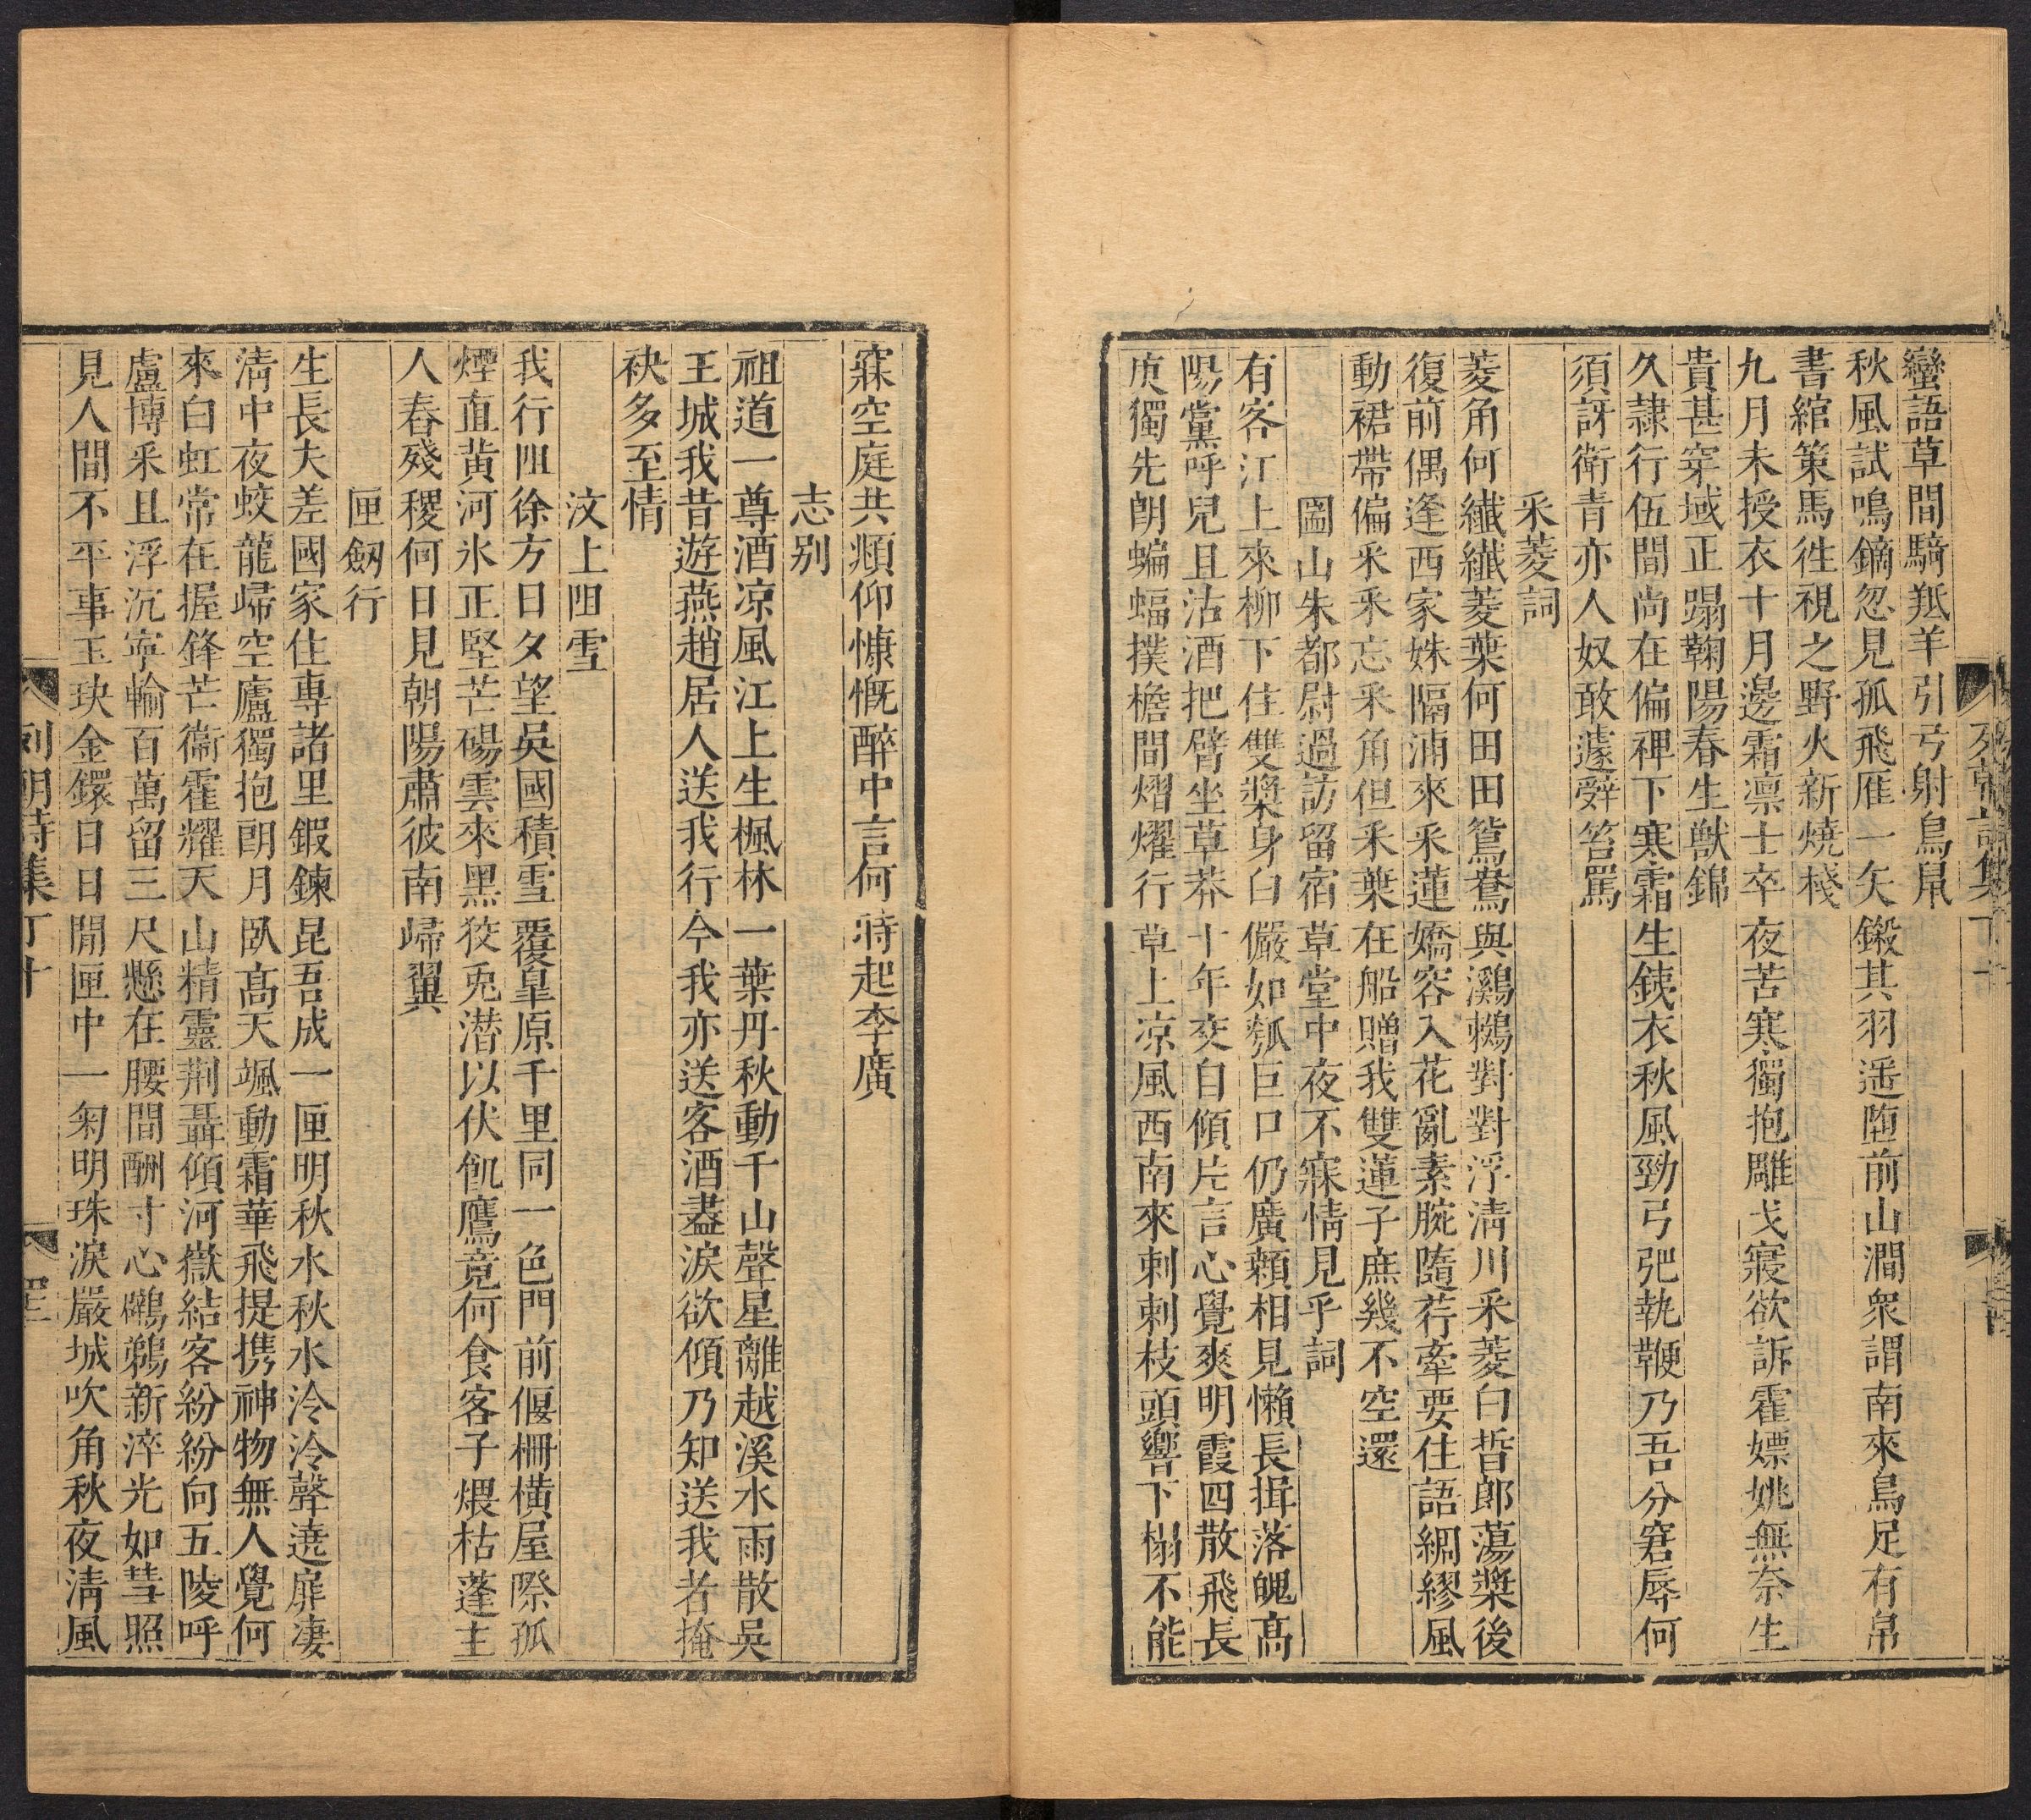 列朝詩集 丁十
蠻語草間騎羝羊引弓射鳥鼠
秋風試鳴鏑忽見孤飛雁一矢鎩其羽遥堕前山澗衆謂南來鳥足有帛
書綰策馬徃視之野火新燒棧
九月未授衣十月邊霜凛士卒夜苦寒獨抱雕戈寢欲訴霍嫖姚無奈生
貴甚穿域正蹋鞠陽春生獸錦
久隷行伍間尚在偏裨下寒霜生銕衣秋風勁弓弝執鞭乃吾分窘辱何
須訝衛青亦人奴敢遽辭笞罵
采菱詞
菱角何纖纖菱葉何田田鴛鴦與鸂鶒對對浮淸川采菱白晳郎蕩槳後
復前偶逢西家姝隔浦來采蓮嬌容入花亂素腕隨荇牽要住語綢繆風
動裙帶偏采采忘采角但采葉在船贈我雙蓮子庶幾不空還
圌山朱都尉過訪留宿草堂中夜不寐情見乎詞
有客江上來柳下住雙槳身白儼如瓠巨口仍廣顙相見懶長揖落魄高
陽黨呼兒且沽酒把臂坐草莽十年交自傾片言心覺爽明霞四散飛長
庚獨先朗蝙蝠撲檐間熠燿行草上凉風西南來刺刺枝頭響下榻不能
寐空庭共頫仰慷慨醉中言何時起李廣
志别
祖道一尊酒凉風江上生楓林一葉丹秋動千山聲星離越溪水雨散吳
王城我昔遊燕趙居人送我行今我亦送客酒盡淚欲傾乃知送我者掩
袂多至情
汶上阻雪
我行阻徐方日夕望吳國積雪覆皐原千里同一色門前偃柵橫屋際孤
煙直黄河氷正堅芒碭雲來黑狡兎潜以伏飢鷹竟何食客子煨枯蓬主
人春殘稷何日見朝陽肅彼南歸翼
匣劒行
生長夫差國家住專諸里鍜鍊昆吾成一匣明秋水秋水泠泠聲遶扉凄
淸中夜蛟龍歸空廬獨抱朗月臥高天颯動霜華飛提携神物無人覺何
來白虹常在握鋒芒衞霍耀天山精靈荆聶傾河嶽結客紛紛向五陵呼
盧博采且浮沉寧輸百萬留三尺懸在腰間酬寸心鸊鵜新淬光如彗照
見人間不平事玉玦金鐶日日閒匣中一匊明珠淚嚴城吹角秋夜淸風
列朝詩集 丁十